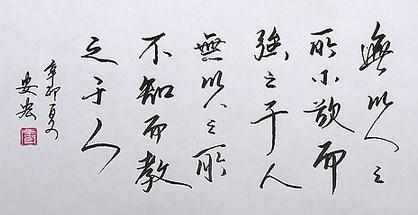 無以人之
所不欲而
強之于人
無以人之所
不知而教
之于人
辛卯夏
安宏